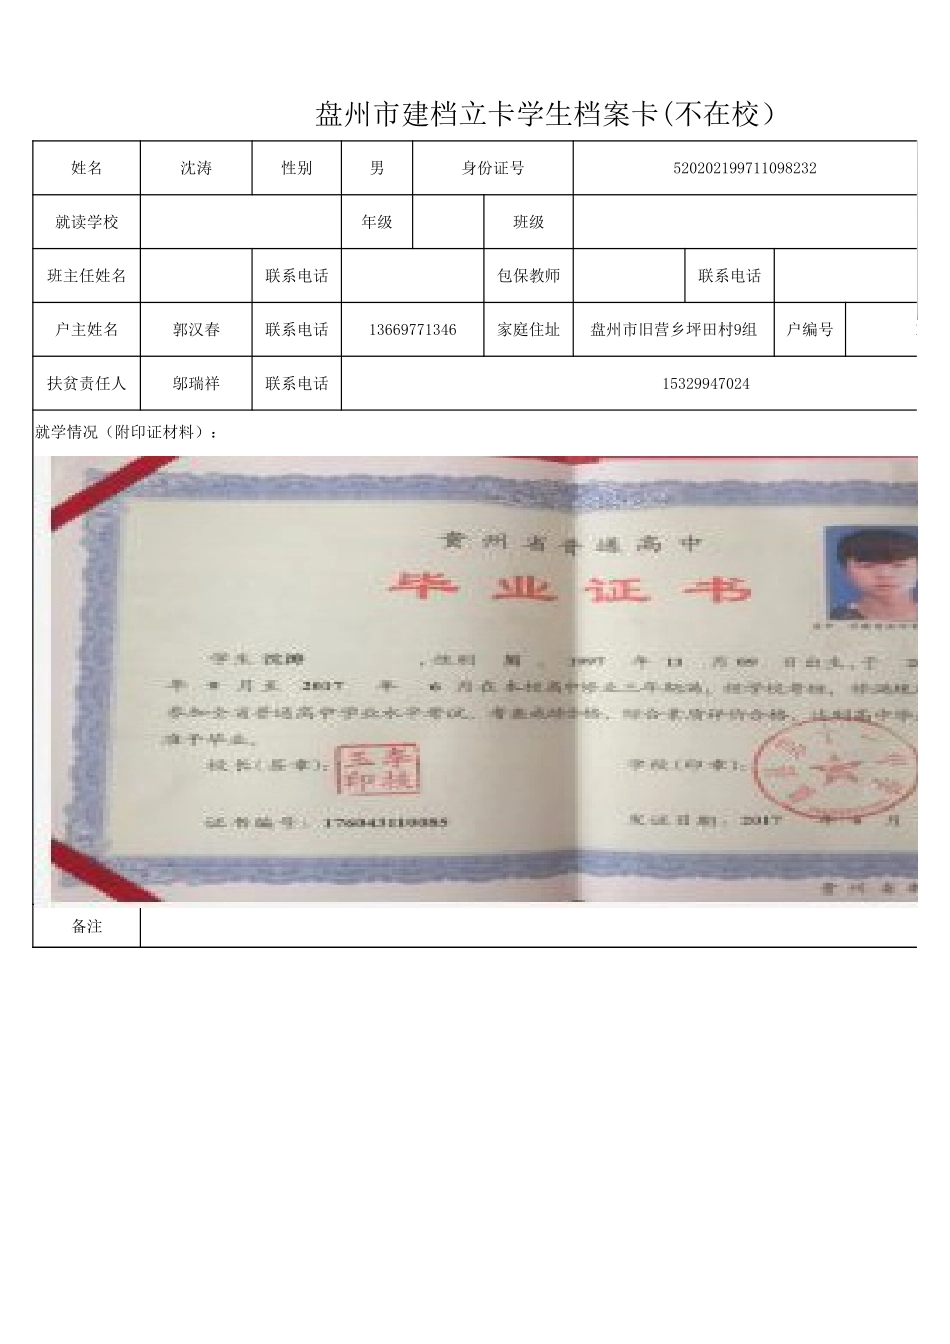 盘州市建档立卡学生档案卡(不在校）
姓名 沈涛 性别 男 身份证号 520202199711098232
就读学校 年级 班级
班主任姓名 联系电话 包保教师 联系电话
户主姓名 郭汉春 联系电话 13669771346 家庭住址 盘州市旧营乡坪田村9组 户编号
扶贫责任人 邬瑞祥 联系电话 15329947024
就学情况（附印证材料）：
贵州省普通高中
毕业证书
学生 沈涛 ，性别 男 ， 1997 年 11 月 09 日出生，于
年 9 月至 2017 年 6 月在本校高中毕业三年期满，
参加全省普通高中学业水平考试、考查成绩合格，综合素质评价合格，达到高中毕
准予毕业。
校长(签章)： 学校(印章)：
证书编号： 发证日期：2017 年 6 月
备注